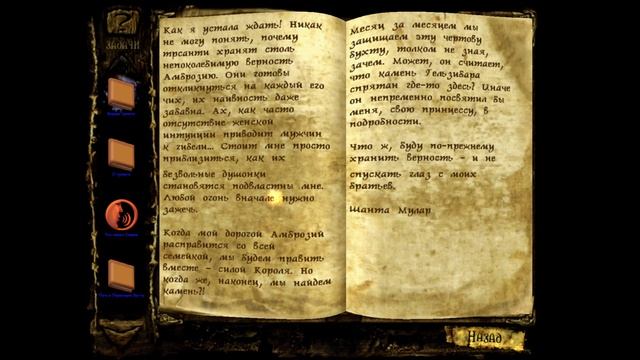 ЗАДАЧИ
Как я устала ждать! Никак
не могу понять, почему
трсанти хранят столь
непоколебимую верность
Амброзию. Они готовы
откликнуться на каждый его
чих, их наивность даже
забавна. Ах, как часто
отсутствие женской
интуиции приводит мужчин
к гибели... Стоит мне просто
приблизиться, как их
безвольные душонки
становятся подвластны мне.
Любой огонь вначале нужно
зажечь.
Когда мой дорогой Амброзий
расправится со всей
семейкой, мы будем править
вместе - силой Короля. Но
когда же, наконец, мы найдем
камень?!
Месяц за месяцем мы
защищаем эту чертову
бухту, толком не зная,
зачем. Может, он считает,
что камень Гельзибара
спрятан где-то здесь? Иначе
он непременно посвятил бы
меня, свою принцессу, в
подробности.
Что ж, буду по-прежнему
хранить верность - и не
спускать глаз с моих
братьев.
Шанта Мулар
Назад